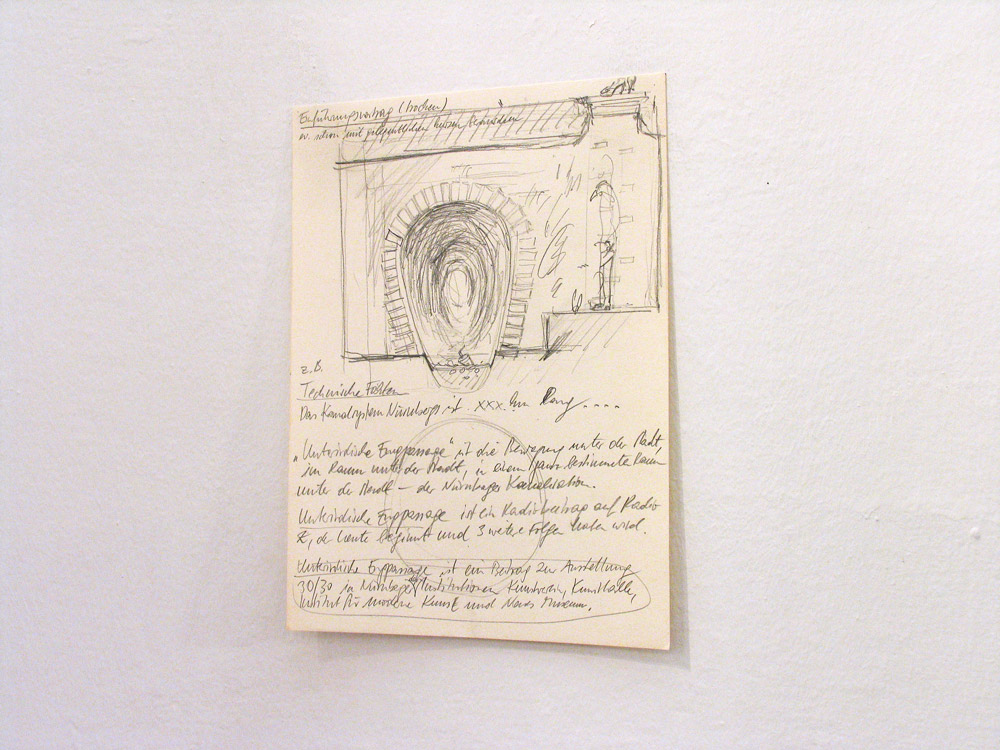 Einführungsvortrag (trocken)
schon mit gelegentlichen
z.B.
Technische Fakten
Das Kanalsystem Nürnbergs ist xxx. km lang....
„Unterirdische Engpassage" ist die Bewegung unter der Stadt,
im Raum unter der Stadt, in einem ganz bestimmten Raum
unter der Stadt – der Nürnberger Kanalisation.
Unterirdische Engpassage ist ein Radiobeitrag auf Radio
Z, der heute beginnt und 3 weitere Folgen haben wird.
Unterirdische Engpassage ist ein Beitrag zur Ausstellung
30/30 in Nürnberger Institutionen Kunstverein, Kunsthalle,
Institut für moderne Kunst und Neues Museum.